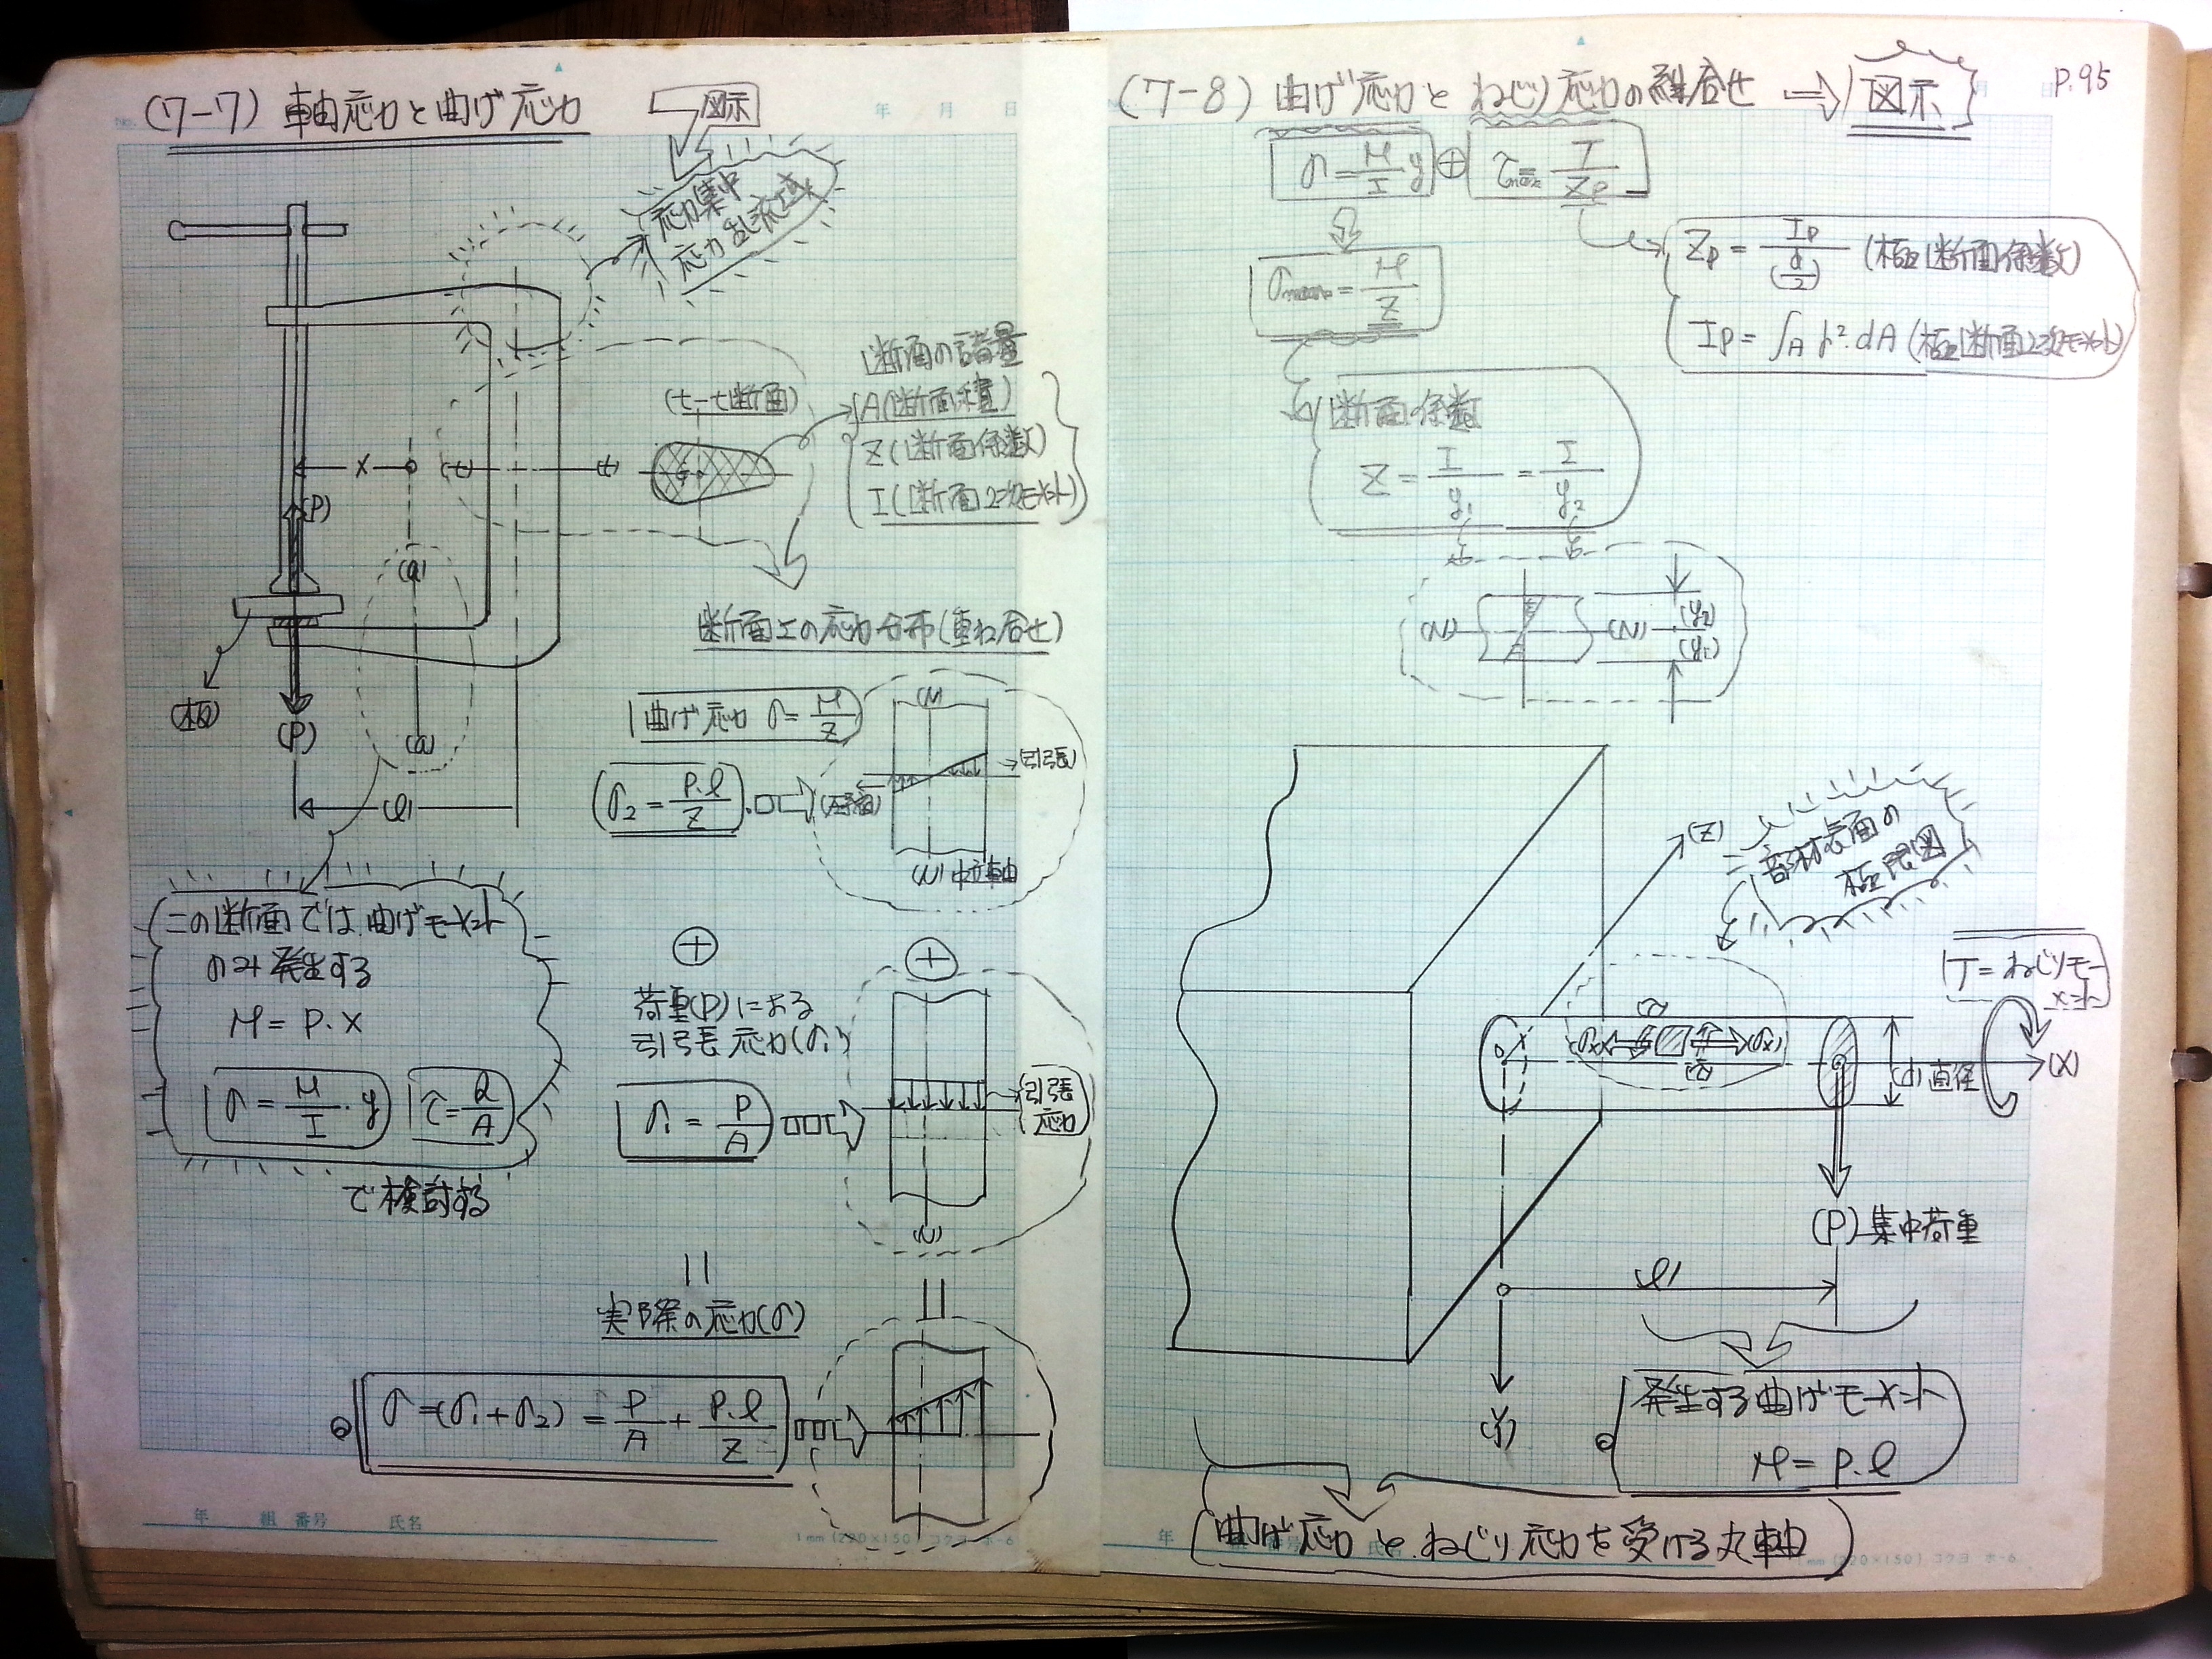 (7-7) 軸応力と曲げ応力
図示
応力集中
応力乱流域
(t-t断面)
断面の諸量
A(断面積)
Z(断面係数)
I(断面2次モーメント)
x
(t)
(t)
G
(P)
(a)
(板)
(P)
(a)
(l)
断面上の応力分布(重ね合せ)
曲げ応力 σ=M/Z
(σ₂=P.l/Z)
(N)
(引張)
(圧縮)
(N)中立軸
この断面では曲げモーメント
のみ発生する
M=P.x
σ=M/I.y τ=Q/A
で検討する
⊕ ⊕
荷重(P)による
引張応力(σ₁)
σ₁=P/A
引張
応力
(N)
=
実際の応力(σ)
σ=(σ₁+σ₂)=P/A+P.l/Z
年 月 日
年 組 番号 氏名
1mm(220×150) コクヨ ホ-6
P.95
(7-8) 曲げ応力とねじり応力の組合せ ⇒ 図示
σ=M/I y ⊕ τmax=T/Zp
σmax=M/Z
Zp=Ip/(d/2) (極断面係数)
Ip=∫A r².dA (極断面2次モーメント)
断面係数
Z=I/y₁=I/y₂
(N) (N) (y₂)
(y₁)
(Z)
部材表面の
拡張図
T=ねじりモー
メント
(τ)
(σx) (σx)
(τ)
(d)直径
(X)
(P)集中荷重
l
(Y)
発生する曲げモーメント
M=P.l
曲げ応力とねじり応力を受ける丸軸
年 番号 氏名
1mm(220×150) コクヨ ホ-6